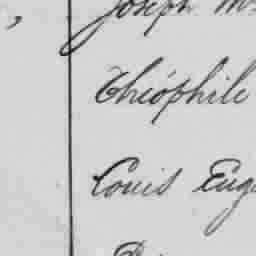 Joseph
Théophile
Louis Eug